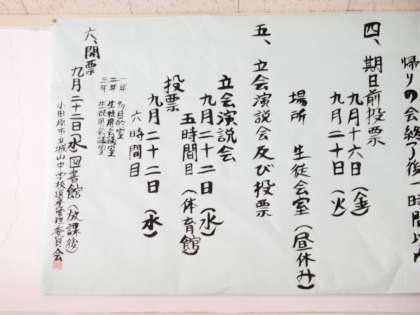 帰りの会終了後一時間以内
四、期日前投票
九月十六日(金)
九月二十日(火)
場所 生徒会室(昼休み)
五、立会演説会及び投票
立会演説会
九月二十二日(水)
五時間目(体育館)
投票
九月二十二日(水)
六時間目
一年 多目的室
二年 生徒用会議室
三年 生徒用会議室
六、開票
九月二十二日(水)図書館(放課後)
小田原市立城山中学校選挙管理委員会